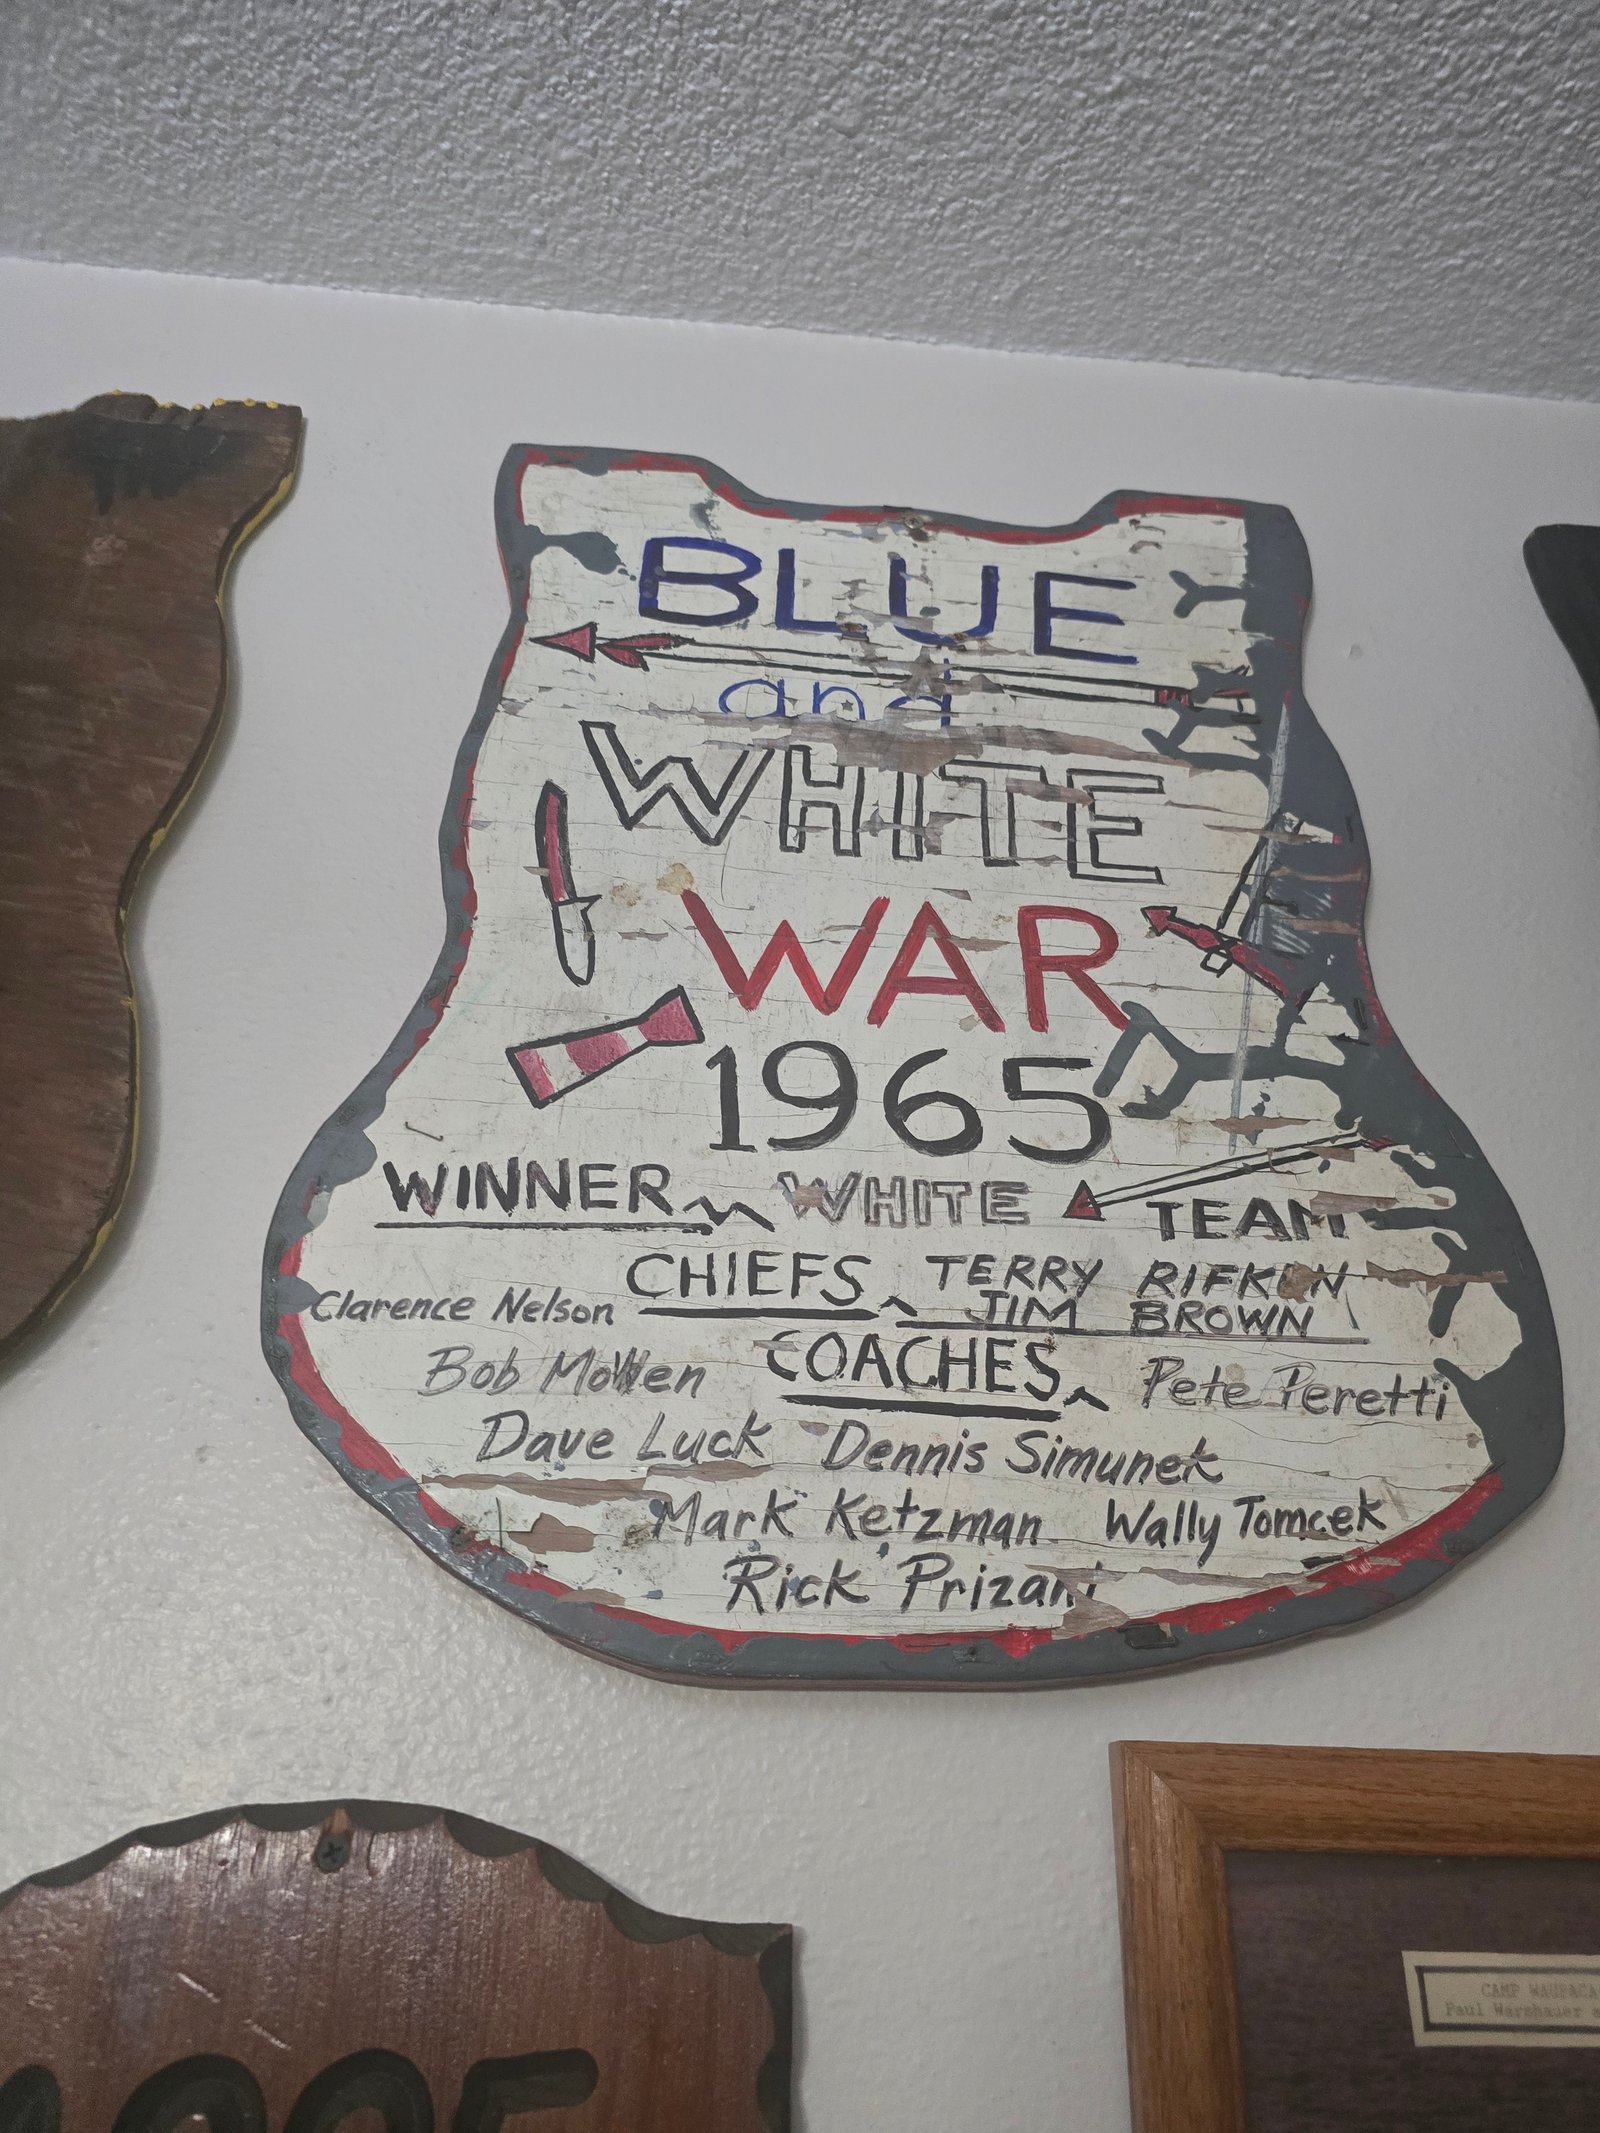 BLUE
and
WHITE
WAR
1965
WINNER WHITE TEAM
CHIEFS TERRY RIFKIN
JIM BROWN
Clarence Nelson
COACHES
Bob Pete Peretti
Dave Luck Dennis Simunek
Mark Ketzman Wally Tomcek
Rick
CAMP
Paul Warshauer